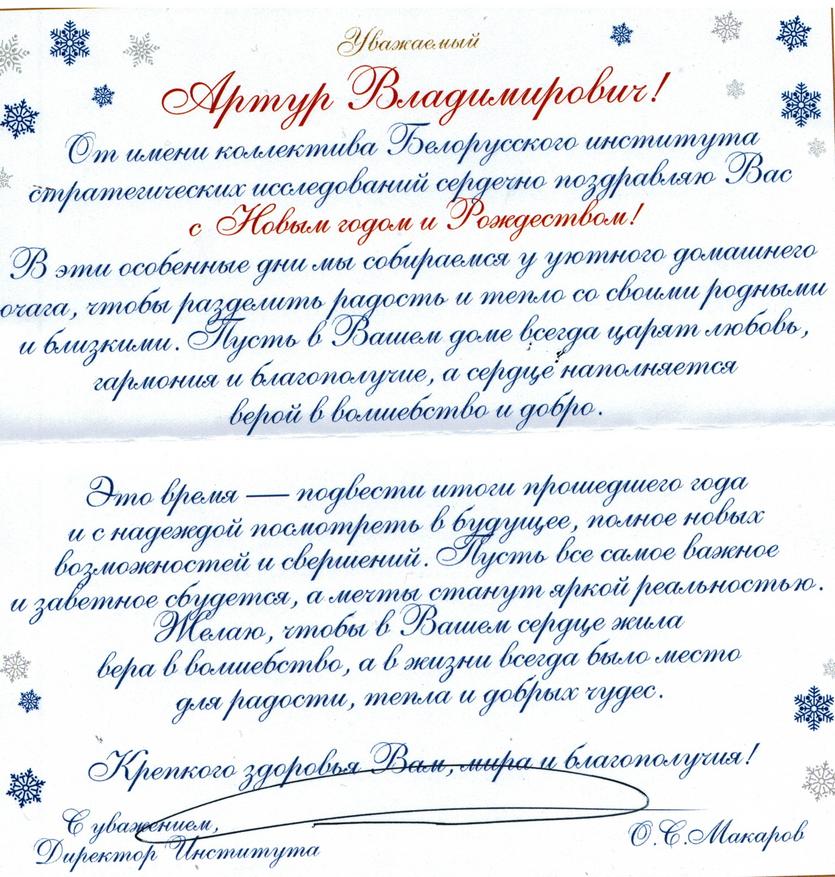 Уважаемый
Артур Владимирович!
От имени коллектива Белорусского института
стратегических исследований сердечно поздравляю Вас
с Новым годом и Рождеством!
В эти особенные дни мы собираемся у уютного домашнего
очага, чтобы разделить радость и тепло со своими родными
и близкими. Пусть в Вашем доме всегда царят любовь,
гармония и благополучие, а сердце наполняется
верой в волшебство и добро.
Это время — подвести итоги прошедшего года
и с надеждой посмотреть в будущее, полное новых
возможностей и свершений. Пусть все самое важное
и заветное сбудется, а мечты станут яркой реальностью.
Желаю, чтобы в Вашем сердце жила
вера в волшебство, а в жизни всегда было место
для радости, тепла и добрых чудес.
Крепкого здоровья Вам, мира и благополучия!
С уважением,
Директор Института
О.С.Макаров